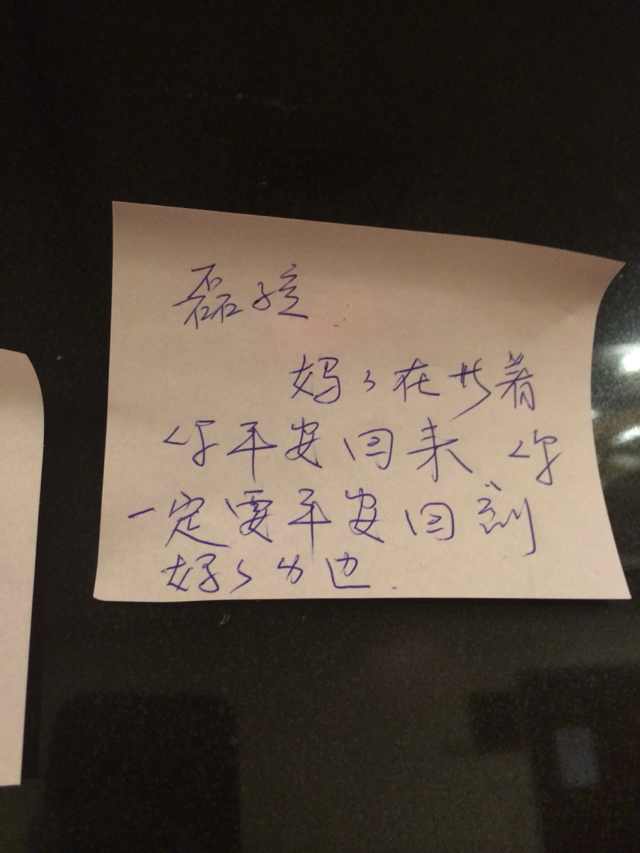 磊孩
妈々在共着
你平安回来 你
一定要平安回到
妈々身边.